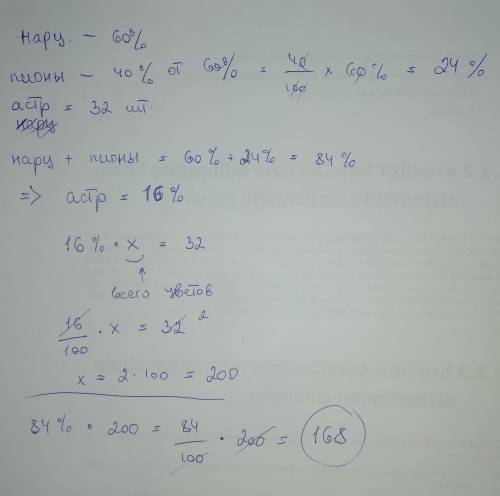 нарц. – 60%
пионы – 40% от 60% = 40/100 × 60% = 24%
астр = 32 шт.
нарц
нарц + пионы = 60% + 24% = 84%
=> астр = 16%
16% · x = 32
всего цветов
16/100 · x = 32 2
x = 2 · 100 = 200
84% · 200 = 84/100 · 200 = 168